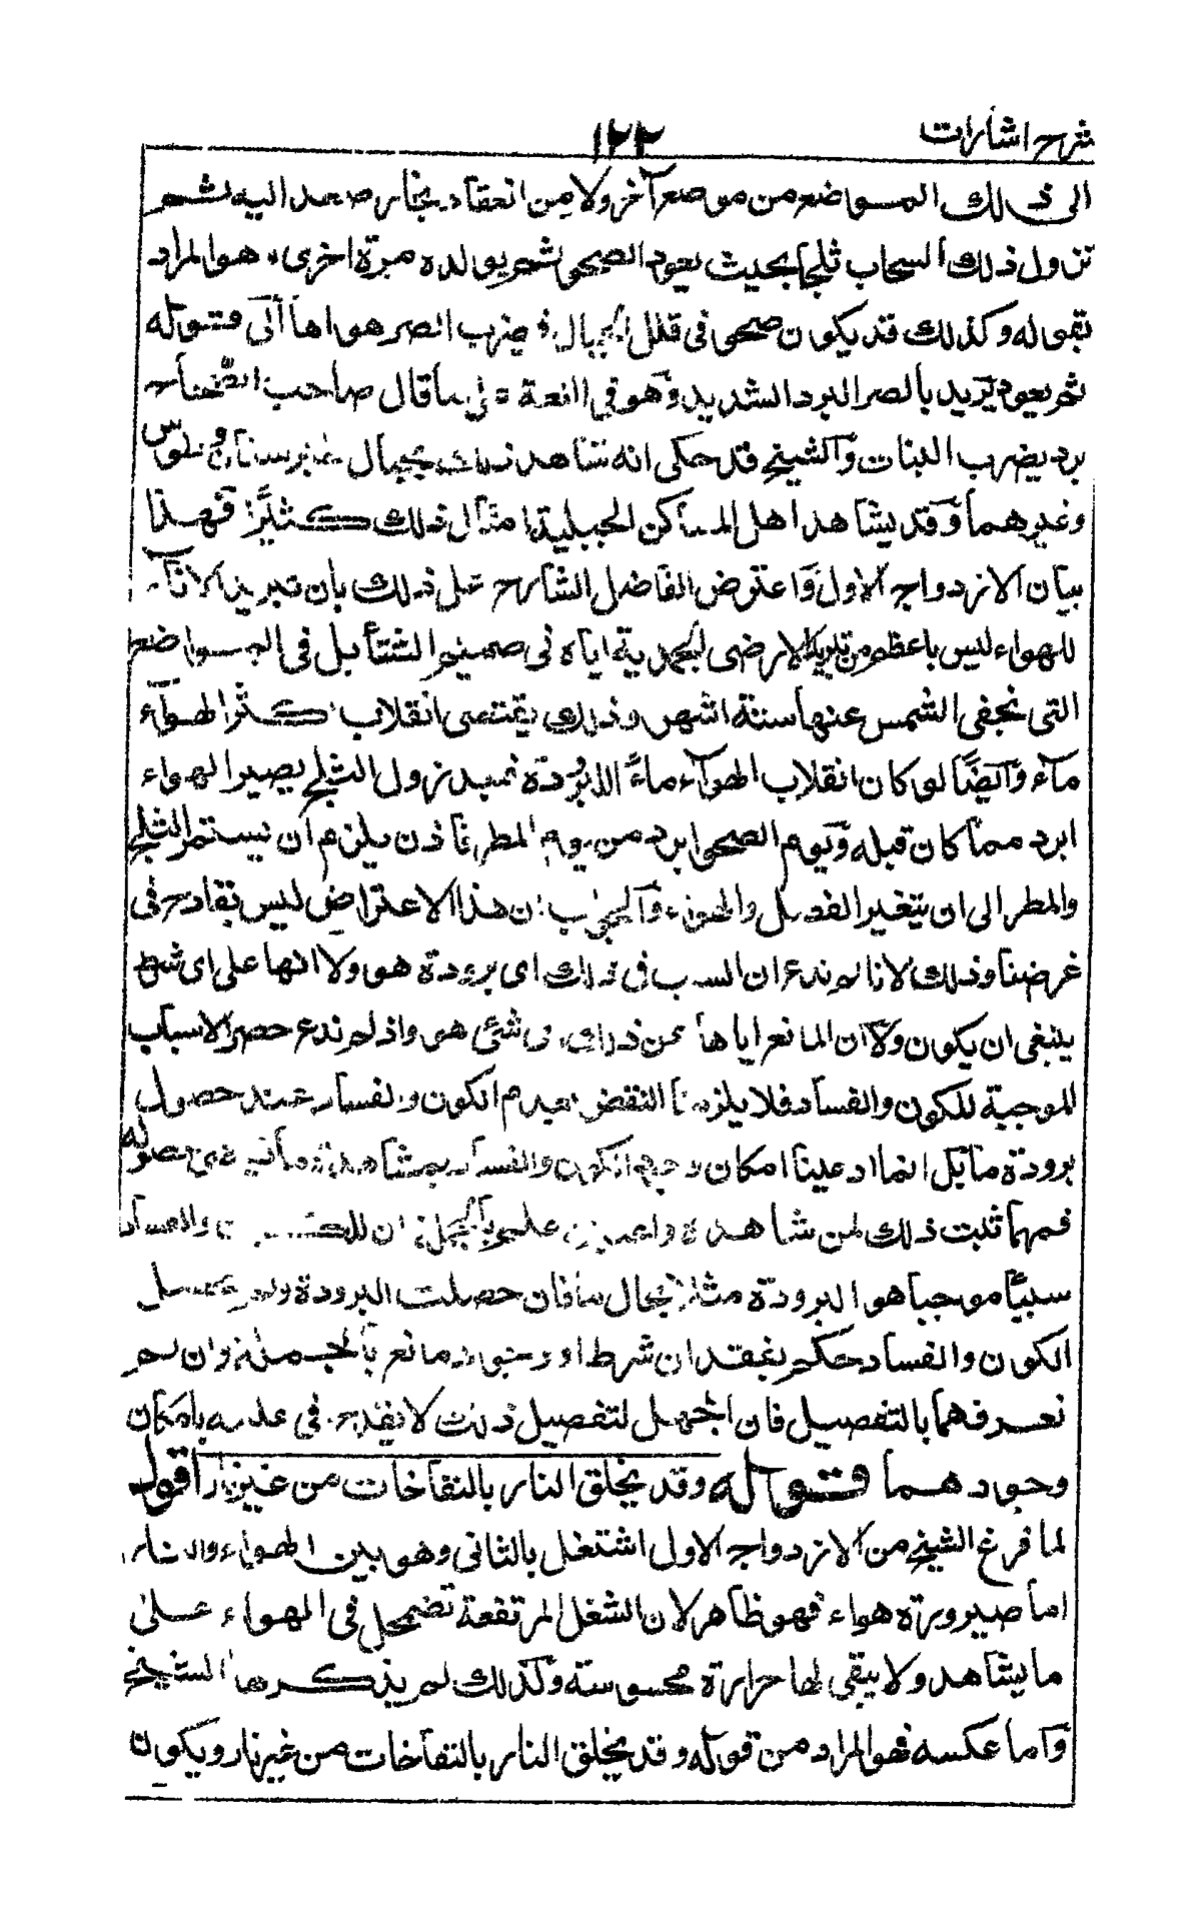 شرح اشارات
۱۲۲
الى ذلك المواضع من موضع آخر ولا من انعقاد بخار صعد اليه ثم
نزول ذلك السحاب ثلجا بحيث يعود الصحو ثم يولده مرة اخرى هو المراد
بقوله وكذلك قد يكون صحو فى قلل الجبال فيضرب الصر هواها الى قوله
ثم يعود يريد بالصر البرد الشديد وهو فى اللغة على ما قال صاحب الصحاح
برد يضرب النبات والشيخ قد حكى انه شاهد ذلك بجبال طبرستان وطوس
وغيرهما وقد يشاهد اهل المساكن الجبلية امثال ذلك كثيرا فهذا
بيان الازدواج الاول واعترض الفاضل الشارح على ذلك بان تبريد الاناء
للهواء ليس باعظم من تبريد الارض الجمدية اياه فى صميم الشتاء بل فى المواضع
التى تخفى الشمس عنها ستة اشهر وذلك يقتضى انقلاب كثر الهواء
ماء وايضا لو كان انقلاب الهواء ماء للبرودة فبعد نزول الثلج يصير الهواء
ابرد مما كان قبله ويوم الصحو ابرد من يوم المطر فاذن يلزم ان يستمر الثلج
والمطر الى ان يتغير الفصل والهواء والجواب ان هذا الاعتراض ليس بقادح فى
غرضنا وذلك لانا لم ندع ان السبب فى ذلك اى برودة هو ولا انها على اى شرط
ينبغى ان يكون ولا ان المانع اياها عن ذلك اى شئ هو واذ لم ندع حصر الاسباب
الموجبة للكون والفساد فلا يلزمنا النقض بعدم الكون والفساد عند حصول
برودة ما بل انما ادعينا امكان وجود الكون والفساد بمشاهدة
فمهما ثبت ذلك لمن شاهده علم بالجملة ان للكون والفساد
سببا موجبا هو البرودة مثلا بحال ما فان حصلت البرودة ولم يحصل
الكون والفساد حكم بفقدان شرط او وجود مانع بالجملة وان لم
نعرفهما بالتفصيل فان الجهل لتفصيل ذلك لا يقدح فى علمه بامكان
وجودهما قوله وقد يخلق النار بالنفاخات من غير نار اقول
لما فرغ الشيخ من الازدواج الاول اشتغل بالثانى وهو بين الهواء والنار
اما صيرورته هواء فهو ظاهر لان الشغل المرتفعة تضمحل فى الهواء على
ما يشاهد ولا يبقى لها حرارة محسوسة وكذلك لم يذكرها الشيخ
واما عكسه فهو المراد من قوله وقد يخلق النار بالنفاخات من غير نار ويكون